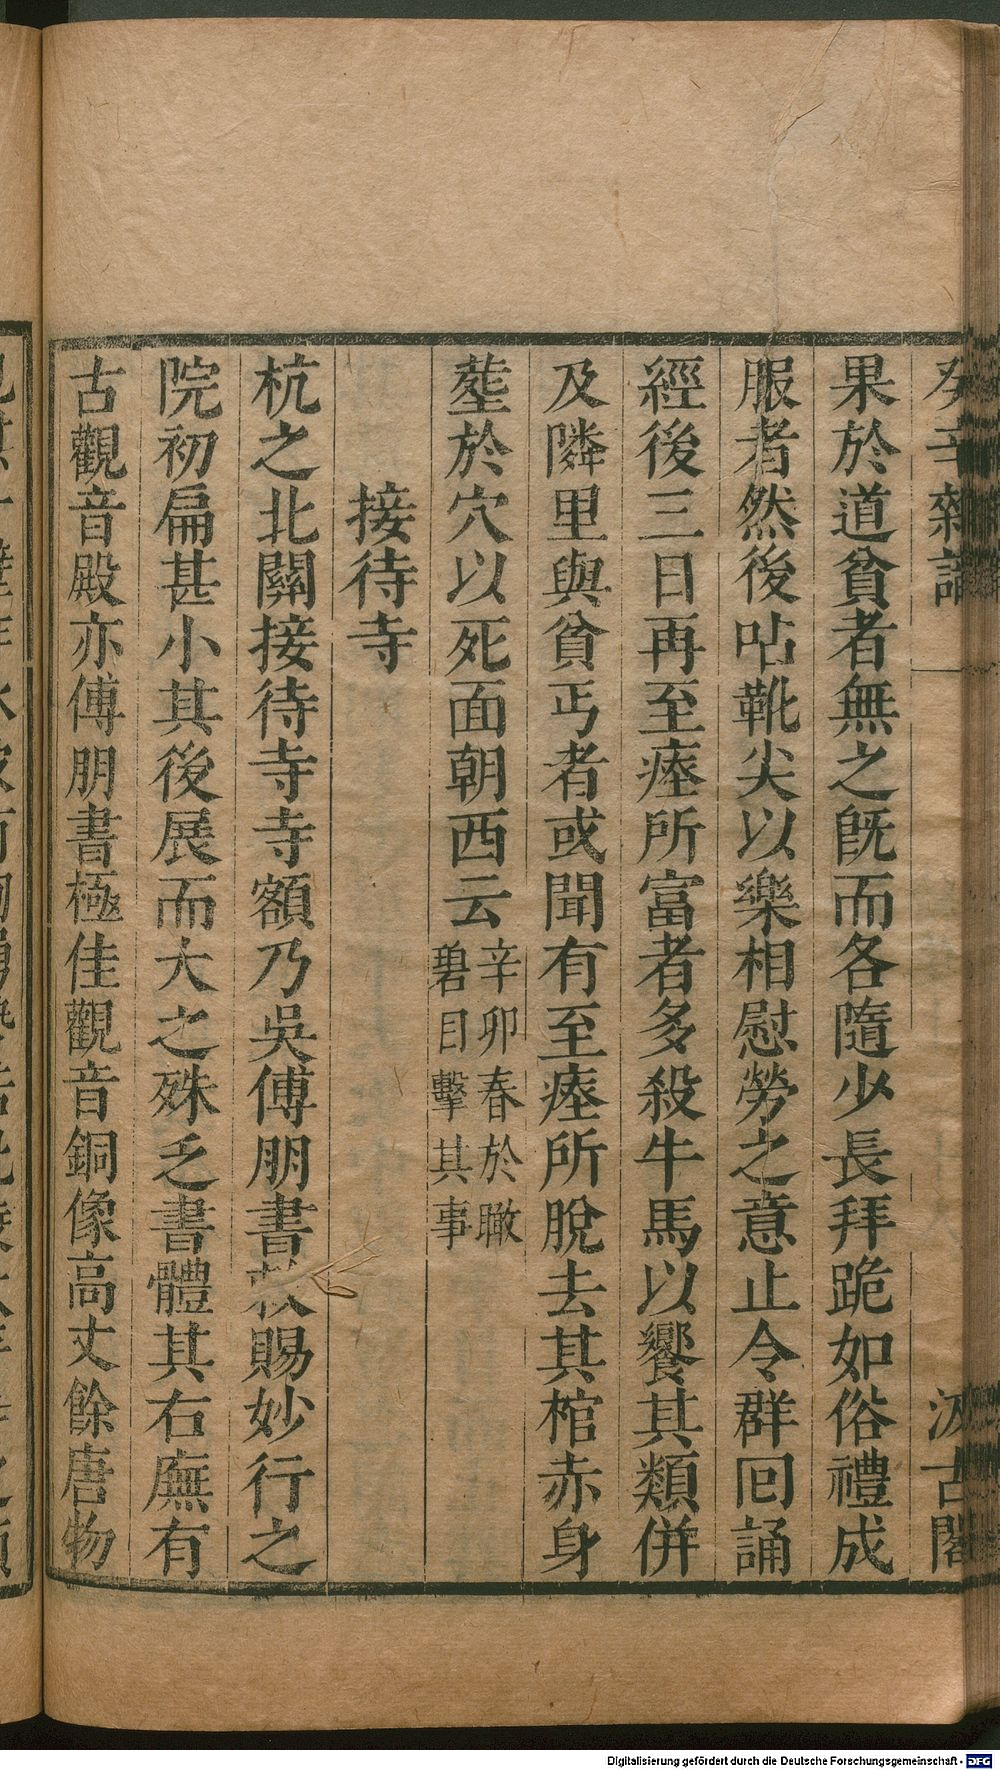 癸辛雜識 汲古閣
果於道貧者無之旣而各隨少長拜跪如俗禮成
服者然後呫靴尖以樂相慰勞之意止令群回誦
經後三日再至瘞所富者多殺牛馬以饗其類併
及隣里與貧丐者或聞有至瘞所脫去其棺赤身
塟於穴以死面朝西云
辛卯春於瞰
碧目擊其事
接待寺
杭之北關接待寺寺額乃吳傅朋書敕賜妙行之
院初扁甚小其後展而大之殊乏書體其右廡有
古觀音殿亦傅朋書極佳觀音銅像高丈餘唐物
Digitalisierung gefördert durch die Deutsche Forschungsgemeinschaft - DFG